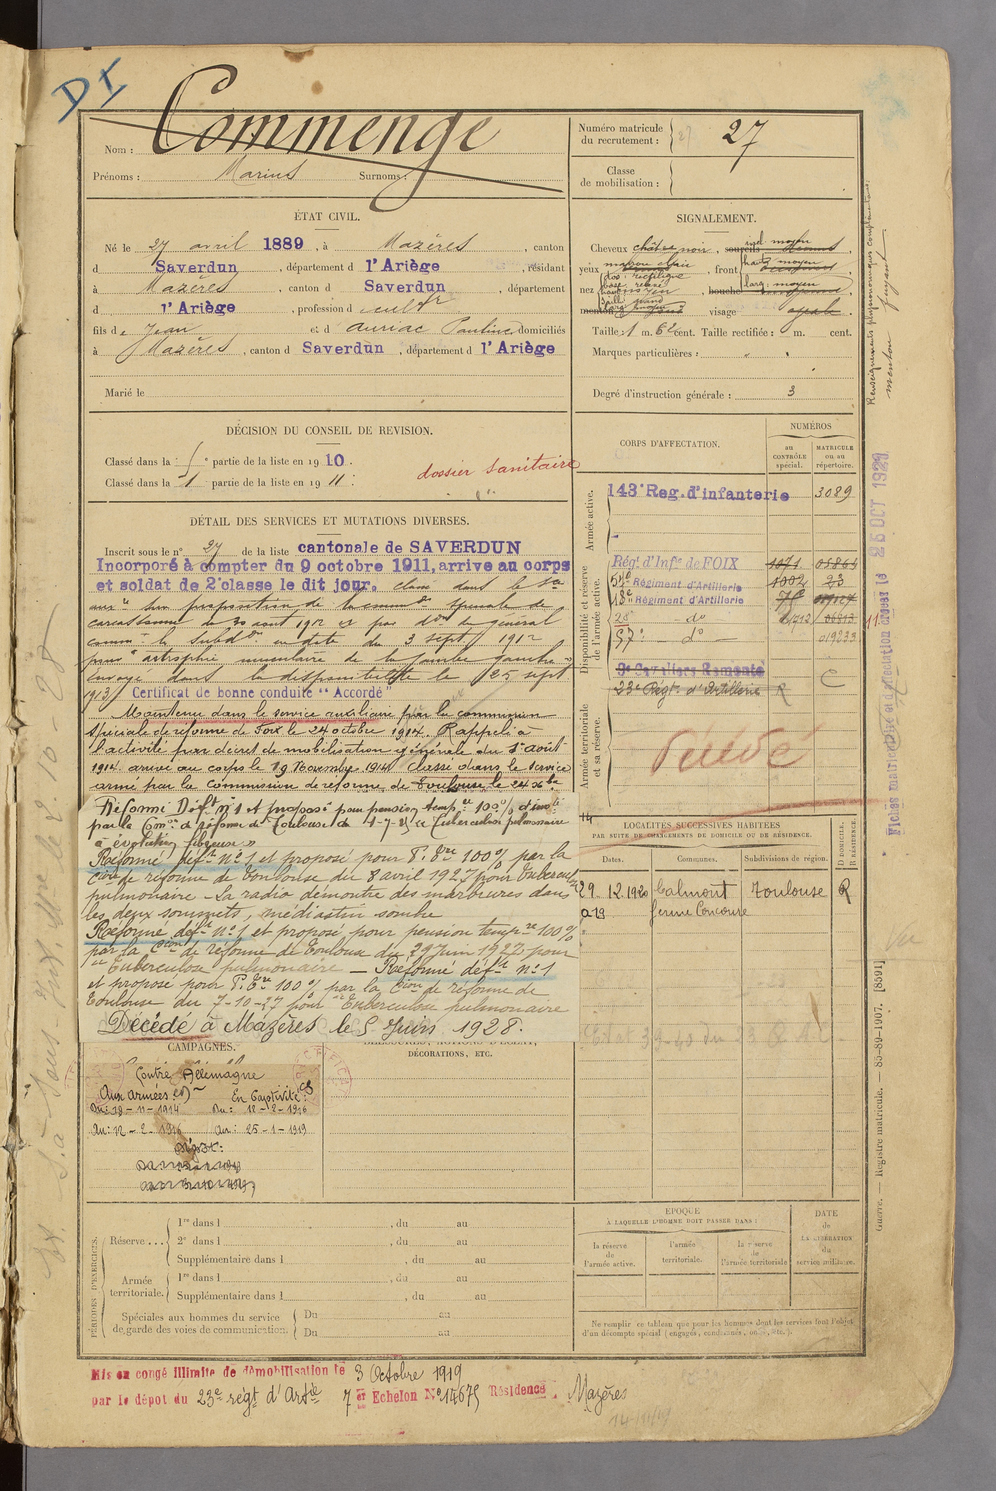 D I
Nom : Commenge
Prénoms : Marius Surnoms :
Numéro matricule du recrutement : 27
Classe de mobilisation :
ÉTAT CIVIL.
Né le 27 avril 1889, à Mazères, canton
d Saverdun, département d l'Ariège, résidant
à Mazères, canton d Saverdun, département
d l'Ariège, profession d cultr
fils de Jean et d Auriac Pauline domiciliés
à Mazères, canton d Saverdun, département d l'Ariège
Marié le
SIGNALEMENT.
Cheveux chât. noir, sourcils
yeux marron clair, front
nez, bouche
menton visage ovale
Taille : 1 m. 62 cent. Taille rectifiée : m. cent.
Marques particulières :
Degré d'instruction générale : 3
Renseignements physionomiques complémentaires
menton fuyant
DÉCISION DU CONSEIL DE REVISION.
Classé dans la partie de la liste en 1910.
Classé dans la 1 partie de la liste en 1911.
dossier sanitaire
DÉTAIL DES SERVICES ET MUTATIONS DIVERSES.
Inscrit sous le n° 27 de la liste cantonale de SAVERDUN
Incorporé à compter du 9 octobre 1911, arrive au corps
et soldat de 2e classe le dit jour. classé dans le sce
auxre sur proposition de la common spéciale de
carcassonne du 30 août 1912 et par don du général
commt la subdon en date du 3 sept 1912
pour atrophie musculaire de la jambe gauche
envoyé dans la disponibilité le 25 sept
1913 Certificat de bonne conduite "Accordé"
Maintenu dans le service auxiliaire par la commission
spéciale de réforme de Foix le 24 octobre 1914. Rappelé à
l'activité par décret de mobilisation générale du 1er août
1914. arrivé au corps le 19 Novembre 1914 classé dans le service
armé par la commission de réforme de Toulouse le 24 xbre
Réformé Déft n°1 et proposé pour pension tempre 100% d'invlé
par la Comon de réforme de Toulouse du 1-7-25 "Tuberculose pulmonaire
à évolution fibreuse"
Réformé défif n°1 et proposé pour P. tre 100% par la
Cion de réforme de Toulouse du 8 avril 1927 pour tubercule
pulmonaire – La radio démontre des marbrures dans
les deux sommets, médiastin sombre
Réformé défif n°1 et proposé pour pension tempre 100%
par la Cion de réforme de Toulouse du 29 juin 1927 pour
"Tuberculose pulmonaire – Réformé défif n°1
et proposé pour P. tre 100% par la Cion de réforme de
Toulouse du 7-10-27 pour "Tuberculose pulmonaire
Décédé à Mazères le 5 Juin 1928.
CORPS D'AFFECTATION.
NUMÉROS
au CONTRÔLE spécial.
MATRICULE ou au répertoire.
Armée active.
143e Reg. d'infanterie 3089
Disponibilité et réserve de l'armée active.
Régt. d'Infie de FOIX 1071
Régiment d'Artillerie 1002 23
18e Régiment d'Artillerie
do
57e do
9e Cavaliers Remonte
23e Régt d'Artillerie R
Armée territoriale et sa réserve.
Décédé
LOCALITÉS SUCCESSIVES HABITÉES
PAR SUITE DE CHANGEMENTS DE DOMICILE OU DE RÉSIDENCE.
Dates. Communes. Subdivisions de région. D DOMICILE. R RÉSIDENCE.
29.12.1920 Calmont Toulouse R
ferme
CAMPAGNES.
Contre Allemagne
Aux armées En Captivité
Du : 19-11-1914 Du : 12-2-1916
Au : 12-2-1916 Au : 25-1-1919
DÉCORATIONS, ETC.
PÉRIODES D'EXERCICES.
Réserve... 1re dans l , du au
2e dans l , du au
Supplémentaire dans l , du au
Armée territoriale. 1re dans l , du au
Supplémentaire dans l , du au
Spéciales aux hommes du service de garde des voies de communication. Du au
Du au
ÉPOQUE
À LAQUELLE L'HOMME DOIT PASSER DANS :
la réserve de l'armée active.
l'armée territoriale.
la réserve de l'armée territoriale
DATE de LA LIBÉRATION du service militaire.
Ne remplir ce tableau que pour les hommes dont les services font l'objet d'un décompte spécial (engagés, condamnés, omis, etc.).
Guerre. — Registre matricule. — 85-89-1907. [8591]
Mis en congé illimité de démobilisation le 3 Octobre 1919
par le dépôt du 23e régt d'Artie 7 er Echelon N° 14675 Résidence Mazères